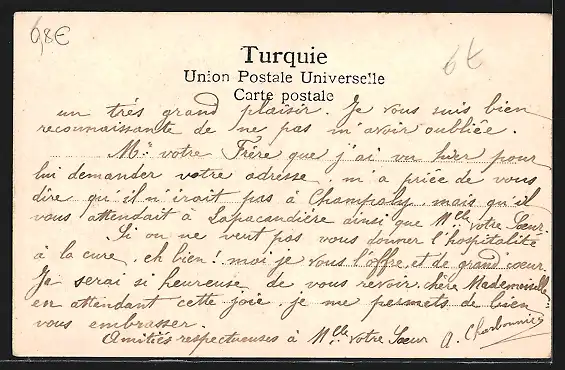 6,8€
6 t
Turquie
Union Postale Universelle
Carte postale
un trés grand plaisir. Je vous suis bien
reconnaissante de ne pas m'avoir oubliée.
Mr votre Frère que j'ai vu hier pour
lui demander votre adresse, m'a priée de vous
dire qu'il n'irait pas à Champoly, mais qu'il
vous attendait à Lapacaudière ainsi que Mlle votre Sœur.
Si on ne veut pas vous donner l'hospitalité
à la cure, eh bien! moi je vous l'offre et de grand cœur.
Je serai si heureuse de vous revoir, chère Mademoiselle,
en attendant cette joie, je me permets de bien
vous embrasser.
Amitiés respectueuses à Mlle votre Sœur A. Cherbonnier